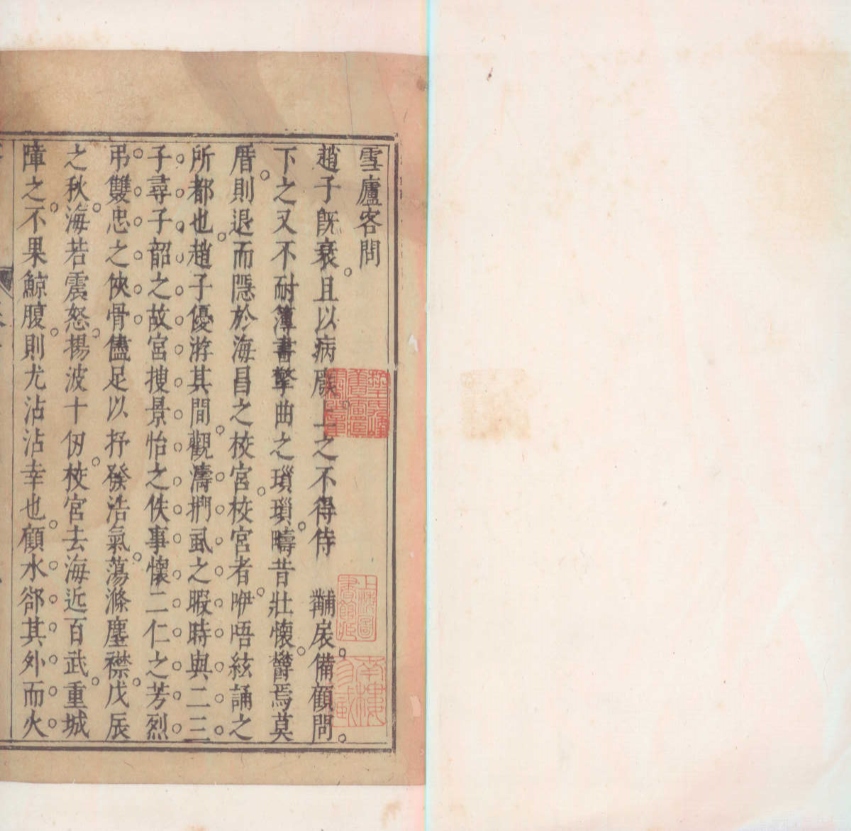 雪廬客問
趙子旣衰且以病廢上之不得侍 黼扆備顧問
下之又不耐簿書擎曲之瑣瑣疇昔壯懷欝焉莫
厝則退而隱於海昌之校宮校宮者咿唔絃誦之
所都也趙子優游其間觀濤捫虱之暇時與二三
子尋子韶之故宮搜景怡之佚事懷二仁之芳烈
弔雙忠之俠骨儘足以抒發浩氣蕩滌塵襟戊辰
之秋海若震怒揚波十仞校宮去海近百武重城
障之不果鯨腹則尤沾沾幸也顧水郤其外而火